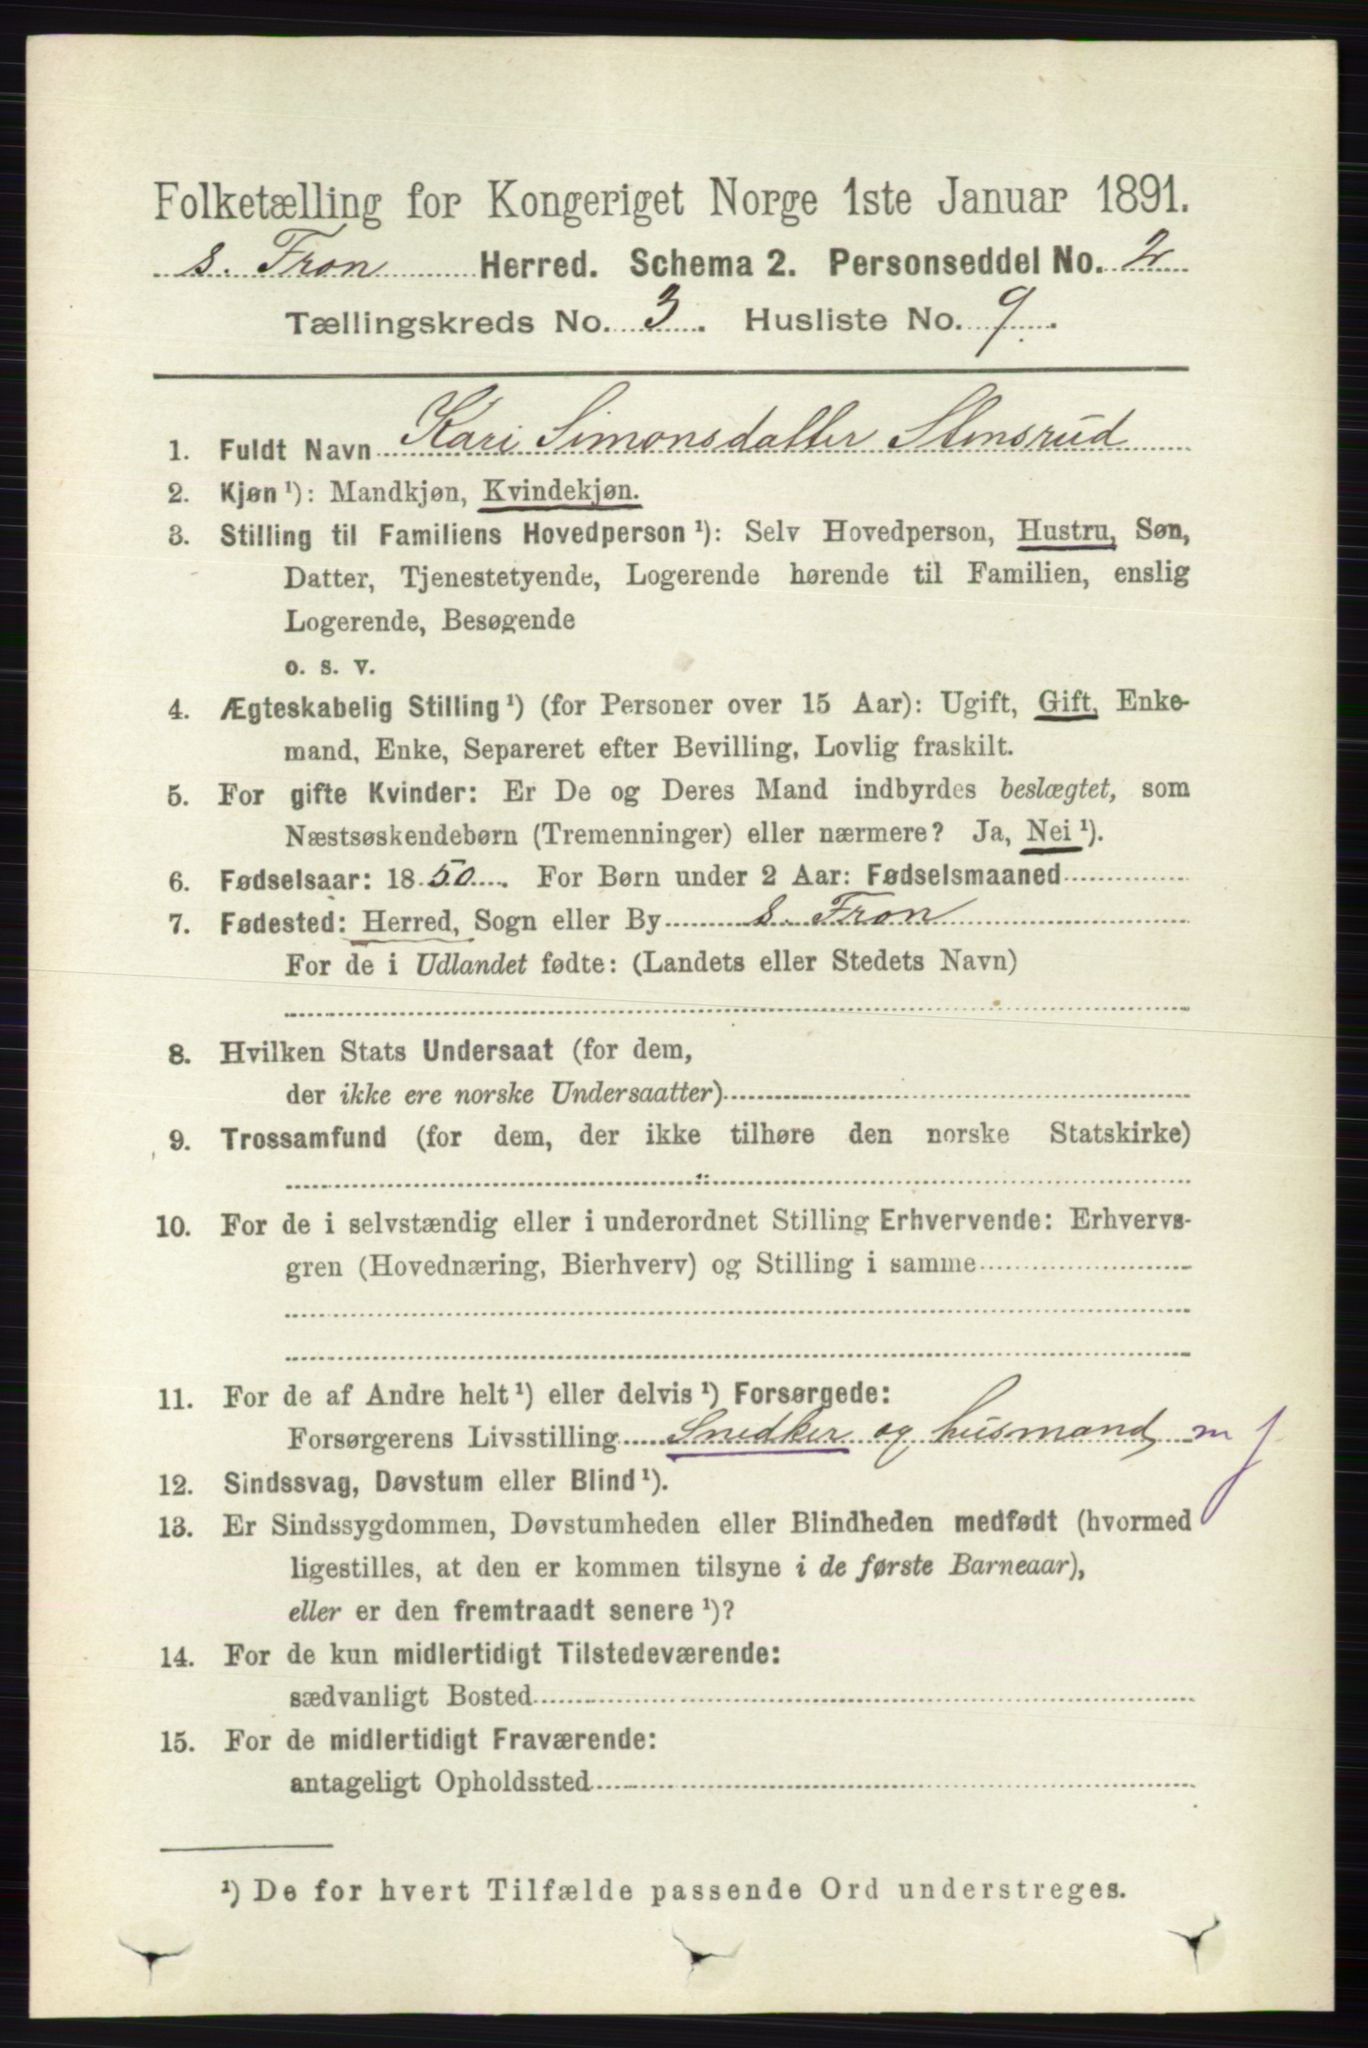 Folketælling for Kongeriget Norge 1ste Januar 1891.
s. Fron Herred. Schema 2. Personseddel No. 2
Tællingskreds No. 3. Husliste No. 9.
1. Fuldt Navn Kari Simonsdatter Stensrud
2. Kjøn ¹): Mandkjøn, Kvindekjøn.
3. Stilling til Familiens Hovedperson ¹): Selv Hovedperson, Hustru, Søn,
Datter, Tjenestetyende, Logerende hørende til Familien, enslig
Logerende, Besøgende
o. s. v.
4. Ægteskabelig Stilling ¹) (for Personer over 15 Aar): Ugift, Gift, Enke-
mand, Enke, Separeret efter Bevilling, Lovlig fraskilt.
5. For gifte Kvinder: Er De og Deres Mand indbyrdes beslægtet, som
Næstsøskendebørn (Tremenninger) eller nærmere? Ja, Nei ¹).
6. Fødselsaar: 1850. For Børn under 2 Aar: Fødselsmaaned
7. Fødested: Herred, Sogn eller By s. Fron
For de i Udlandet fødte: (Landets eller Stedets Navn)
8. Hvilken Stats Undersaat (for dem,
der ikke ere norske Undersaatter)
9. Trossamfund (for dem, der ikke tilhøre den norske Statskirke)
10. For de i selvstændig eller i underordnet Stilling Erhvervende: Erhvervs-
gren (Hovednæring, Bierhverv) og Stilling i samme
11. For de af Andre helt ¹) eller delvis ¹) Forsørgede:
Forsørgerens Livsstilling Snedker og husmand m j
12. Sindssvag, Døvstum eller Blind ¹).
13. Er Sindssygdommen, Døvstumheden eller Blindheden medfødt (hvormed
ligestilles, at den er kommen tilsyne i de første Barneaar),
eller er den fremtraadt senere ¹)?
14. For de kun midlertidigt Tilstedeværende:
sædvanligt Bosted
15. For de midlertidigt Fraværende:
antageligt Opholdssted
¹) De for hvert Tilfælde passende Ord understreges.